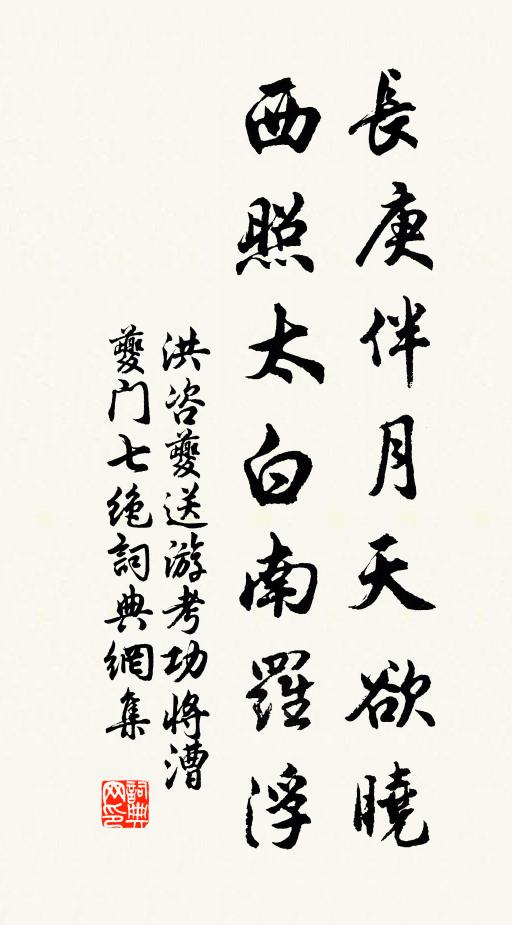 長庚伴月天欲曉
西照太白南羅浮
洪咨夔送游考功將漕
夔門七絶詞典網集
詞典网印